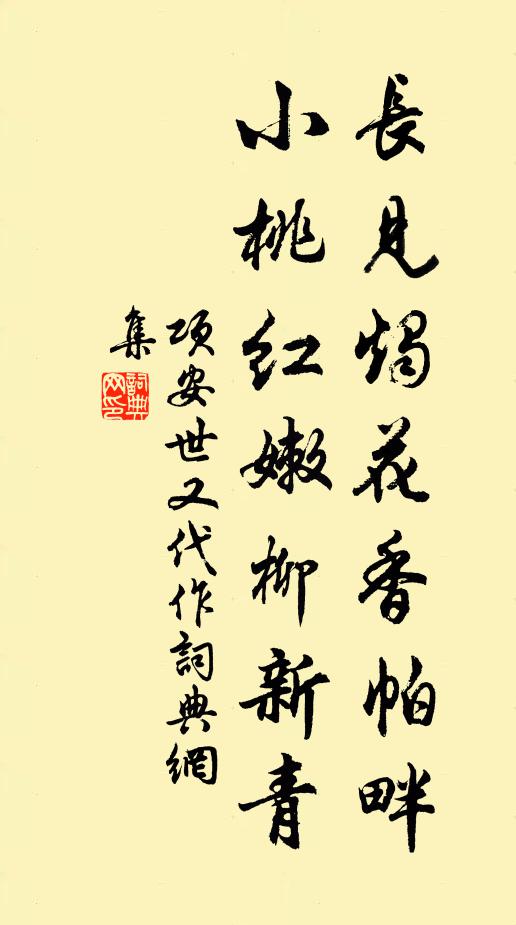 長見燭花香帕畔
小桃紅嫩柳新青
項安世又代作詞典網
集
詞典網印